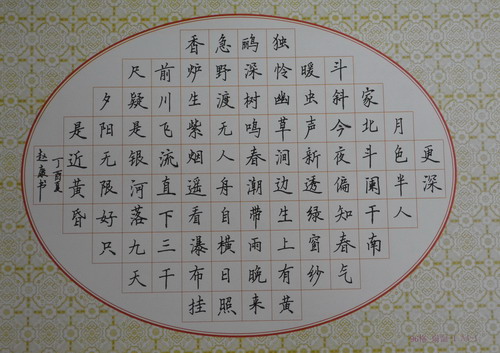 更深
月色半人
家北斗阑干南
斗斜今夜偏知春气
暖虫声新透绿窗纱
独怜幽草涧边生上有黄
鹂深树鸣春潮带雨晚来
急野渡无人舟自横日照
香炉生紫烟遥看瀑布挂
前川飞流直下三千
尺疑是银河落九天
夕阳无限好只
是近黄昏
丁酉夏
赵康书